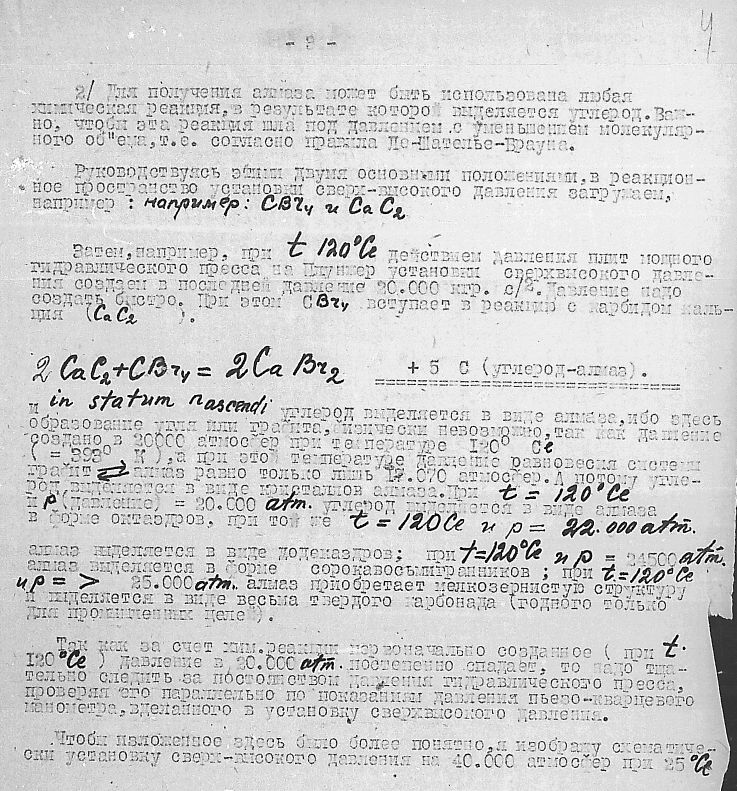 4
- 3 -
2/ Для получения алмаза может быть использована любая
химическая реакция, в результате которой выделяется углерод. Важ-
но, чтобы эта реакция шла под давлением с уменьшением молекуляр-
ного об"ема, т.е. согласно правила Ле-Шателье-Брауна.
Руководствуясь этими двумя основными положениями, в реакцион-
ное пространство установки сверх-высокого давления загружаем,
например : например: CBr4 и CaC2
Затем, например, при t 120°Ce действием давления плит мощного
гидравлического пресса на плунжер установки сверхвысокого давле-
ния создаем в последней давление 20.000 кгр. с/2. Давление надо
создать быстро. При этом CBr4 вступает в реакцию с карбидом каль-
ция (CaC2 ).
2 CaC2+CBr4 = 2CaBr2 + 5 C (углерод-алмаз).
и in statum nascendi углерод выделяется в виде алмаза, ибо здесь
образование угля или графита, физически невозможно, так как давление
создано в 20000 атмосфер при температуре 120° Ce
( = 393° К ), а при этой температуре давление равновесия системы
графит ⇄ алмаз равно только лишь атмосфер. А потому угле-
род выделяется в виде кристаллов алмаза. При t = 120°Ce
и p (давление) = 20.000 atm. углерод выделяется в виде алмаза
в форме октаэдров, при той же t = 120Ce и p = 22.000 atm.
алмаз выделяется в виде додекаэдров; при t=120°Ce и p = 24500 atm.
алмаз выделяется в форме сорокавосьмигранников ; при t=120°Ce
и p = > 25.000 atm. алмаз приобретает мелкозернистую структуру
и выделяется в виде весьма твердого карбонада (годного только
для промышленных целей).
Так как за счет хим.реакции первоначально созданное ( при t.
120°Ce ) давление в 20.000 atm. постепенно спадает, то надо тща-
тельно следить за постоянством давления гидравлического пресса,
проверяя его параллельно по показаниям давления пьезо-кварцевого
манометра, вделанного в установку сверхвысокого давления.
Чтобы изложенное здесь было более понятно, я изображу схематиче-
ски установку сверх-высокого давления на 40.000 атмосфер при 25°Ce